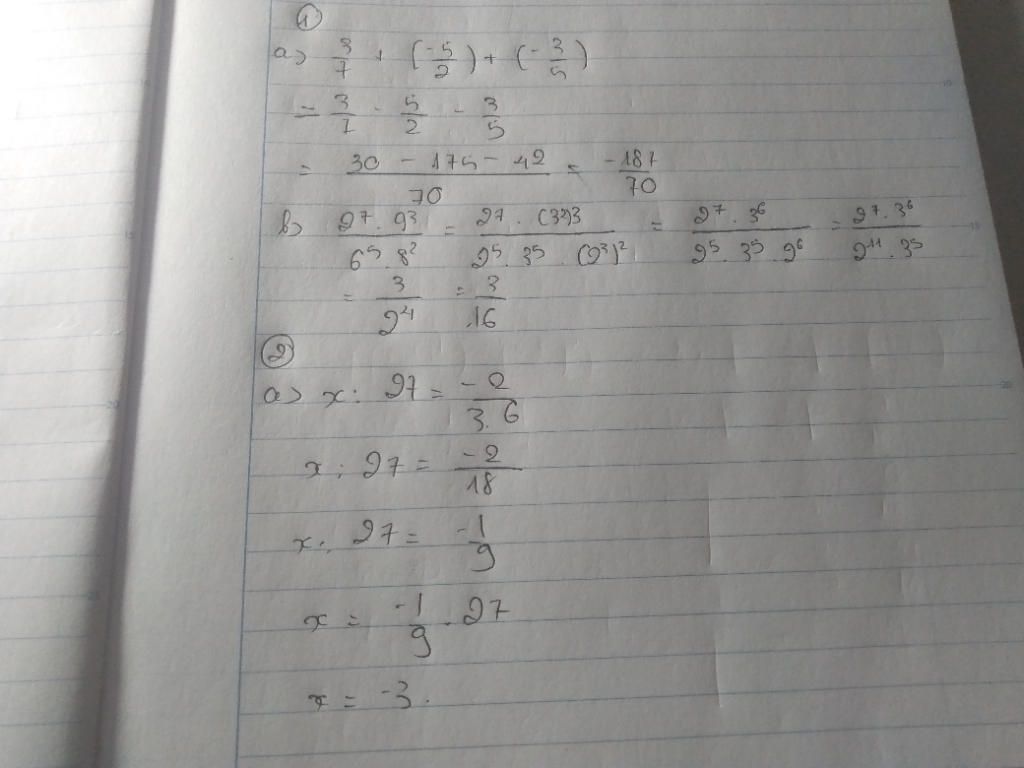 1
a) 3/7 + (-5/2) + (-3/5)
= 3/7 - 5/2 - 3/5
= (30 - 175 - 42)/70 = -187/70
b) (2⁷ . 9³)/(6⁵ . 8²) = (27 . (3²)3)/(2⁵ . 3⁵ . (2³)²) = (2⁷ . 3⁶)/(2⁵ . 3⁵ . 2⁶) = (2⁷ . 3⁶)/(2¹¹ . 3⁵)
= 3/2⁴ = 3/16
2
a) x : 27 = -2/3.6
x : 27 = -2/18
x : 27 = -1/9
x = -1/9 . 27
x = -3.